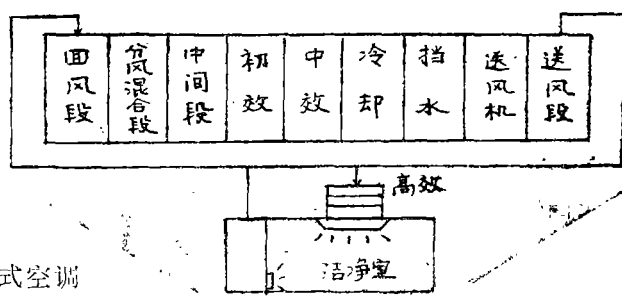 面风段
分风混合段
中间段
初效
中效
冷却
挡水
送风机
送风段
高效
洁净室
式空调